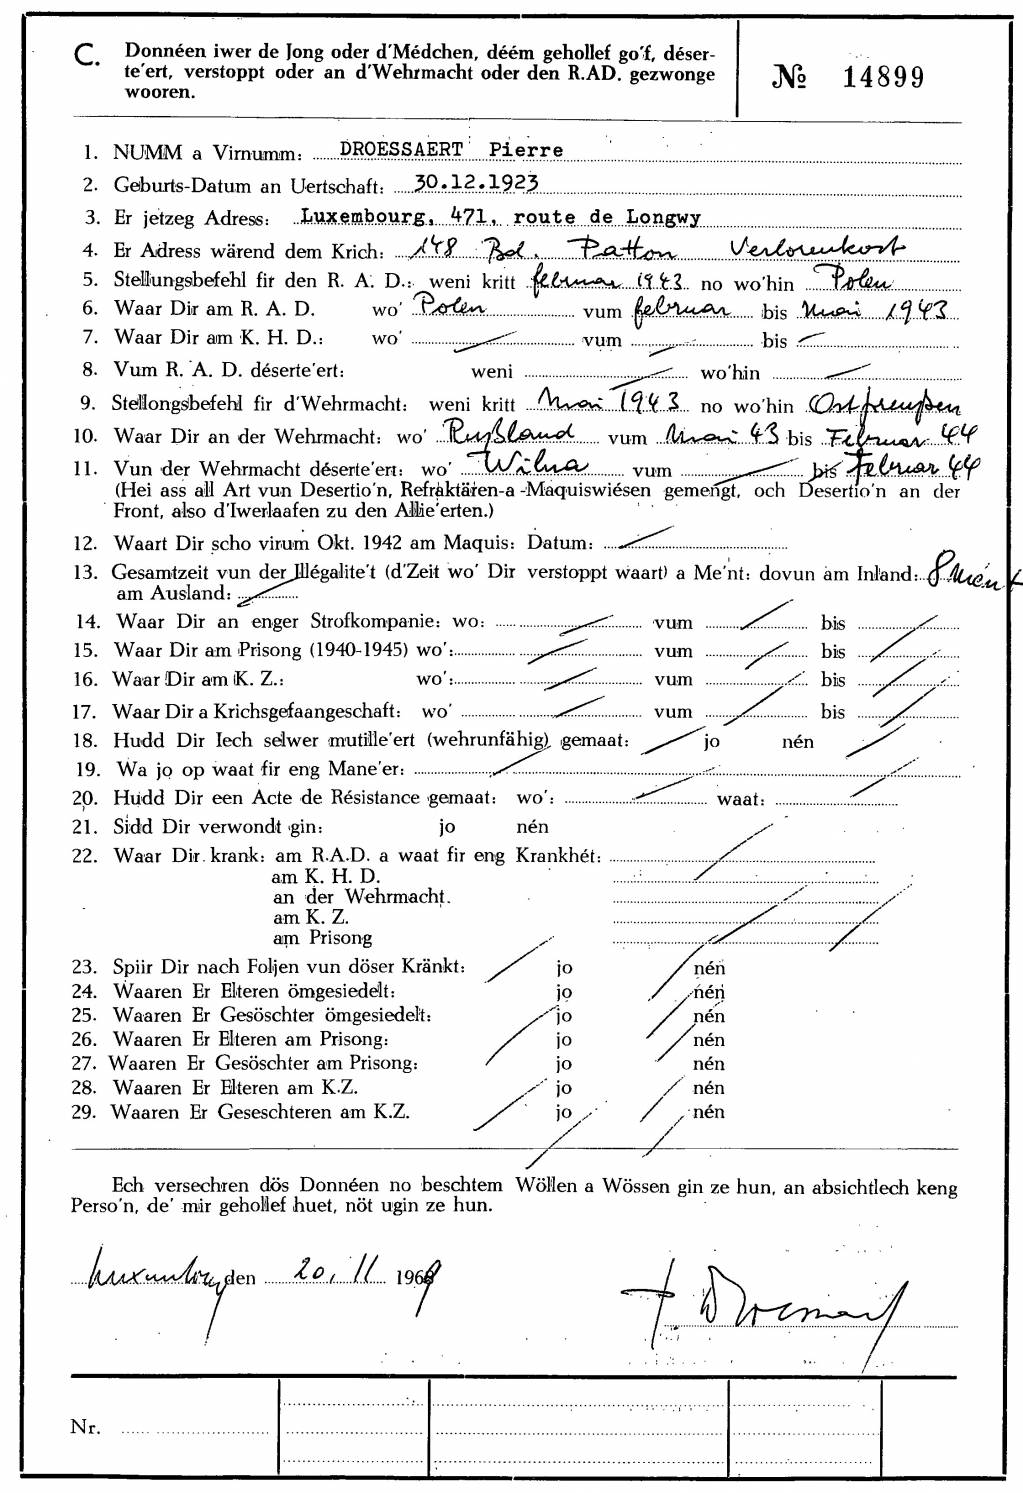 C. Donnéen iwer de Jong oder d'Médchen, déém gehollef go'f, déser-
te'ert, verstoppt oder an d'Wehrmacht oder den R.AD. gezwonge
wooren.
№ 14899
1. NUMM a Virnumm: DROESSAERT Pierre
2. Geburts-Datum an Uertschaft: 30.12.1923
3. Er jetzeg Adress: Luxembourg, 471, route de Longwy
4. Er Adress wärend dem Krich: 148 Bd. Patton Verlorenkost
5. Stellungsbefehl fir den R. A. D.: weni kritt februar 1943 no wo'hin Polen
6. Waar Dir am R. A. D. wo' Polen vum februar bis Mai 1943
7. Waar Dir am K. H. D.: wo' vum bis
8. Vum R. A. D. déserte'ert: weni wo'hin
9. Stellongsbefehl fir d'Wehrmacht: weni kritt Mai 1943 no wo'hin Ostpreußen
10. Waar Dir an der Wehrmacht: wo' Rußland vum Mai 43 bis Februar 44
11. Vun der Wehrmacht déserte'ert: wo' Wilna vum bis februar 44
(Hei ass all Art vun Desertio'n, Refraktären-a -Maquiswiésen gemengt, och Desertio'n an der
Front, also d'Iwerlaafen zu den Allie'erten.)
12. Waart Dir scho virum Okt. 1942 am Maquis: Datum:
13. Gesamtzeit vun der Illégalite't (d'Zeit wo' Dir verstoppt waart) a Me'nt: dovun am Inland: 8 Mént
am Ausland:
14. Waar Dir an enger Strofkompanie: wo: vum bis
15. Waar Dir am Prisong (1940-1945) wo': vum bis
16. Waar Dir am K. Z.: wo': vum bis
17. Waar Dir a Krichsgefaangeschaft: wo' vum bis
18. Hudd Dir Iech selwer mutille'ert (wehrunfähig) gemaat: jo nén
19. Wa jo op waat fir eng Mane'er:
20. Hudd Dir een Acte de Résistance gemaat: wo': waat:
21. Sidd Dir verwondt gin: jo nén
22. Waar Dir krank: am R.A.D. a waat fir eng Krankhét:
am K. H. D.
an der Wehrmacht.
am K. Z.
am Prisong
23. Spiir Dir nach Foljen vun döser Kränkt: jo nén
24. Waaren Er Elteren ömgesiedelt: jo nén
25. Waaren Er Gesöschter ömgesiedelt: jo nén
26. Waaren Er Elteren am Prisong: jo nén
27. Waaren Er Gesöschter am Prisong: jo nén
28. Waaren Er Elteren am K.Z. jo nén
29. Waaren Er Geseschteren am K.Z. jo nén
Ech versechren dös Donnéen no beschtem Wöllen a Wössen gin ze hun, an absichtlech keng
Perso'n, de' mir gehollef huet, nöt ugin ze hun.
Luxemburg den 20. 11 1968
Nr.